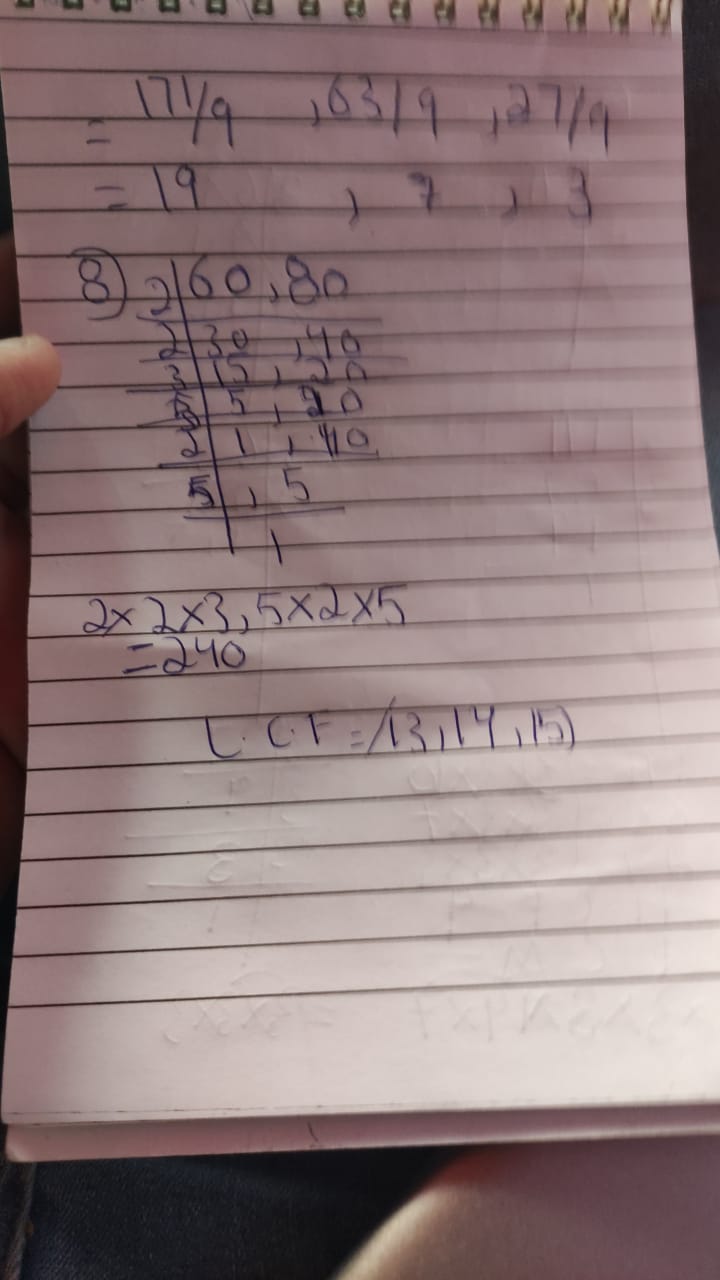 = 171/9 , 63/9 , 27/9
= 19 , 7 , 3
8) 2 | 60, 80
2 | 30, 40
3 | 15, 20
5 | 5, 20
2 | 1, 40
5 | , 5
1
2 x 2 x 3, 5 x 2 x 5
= 240
L.C.F = (13, 14, 15)